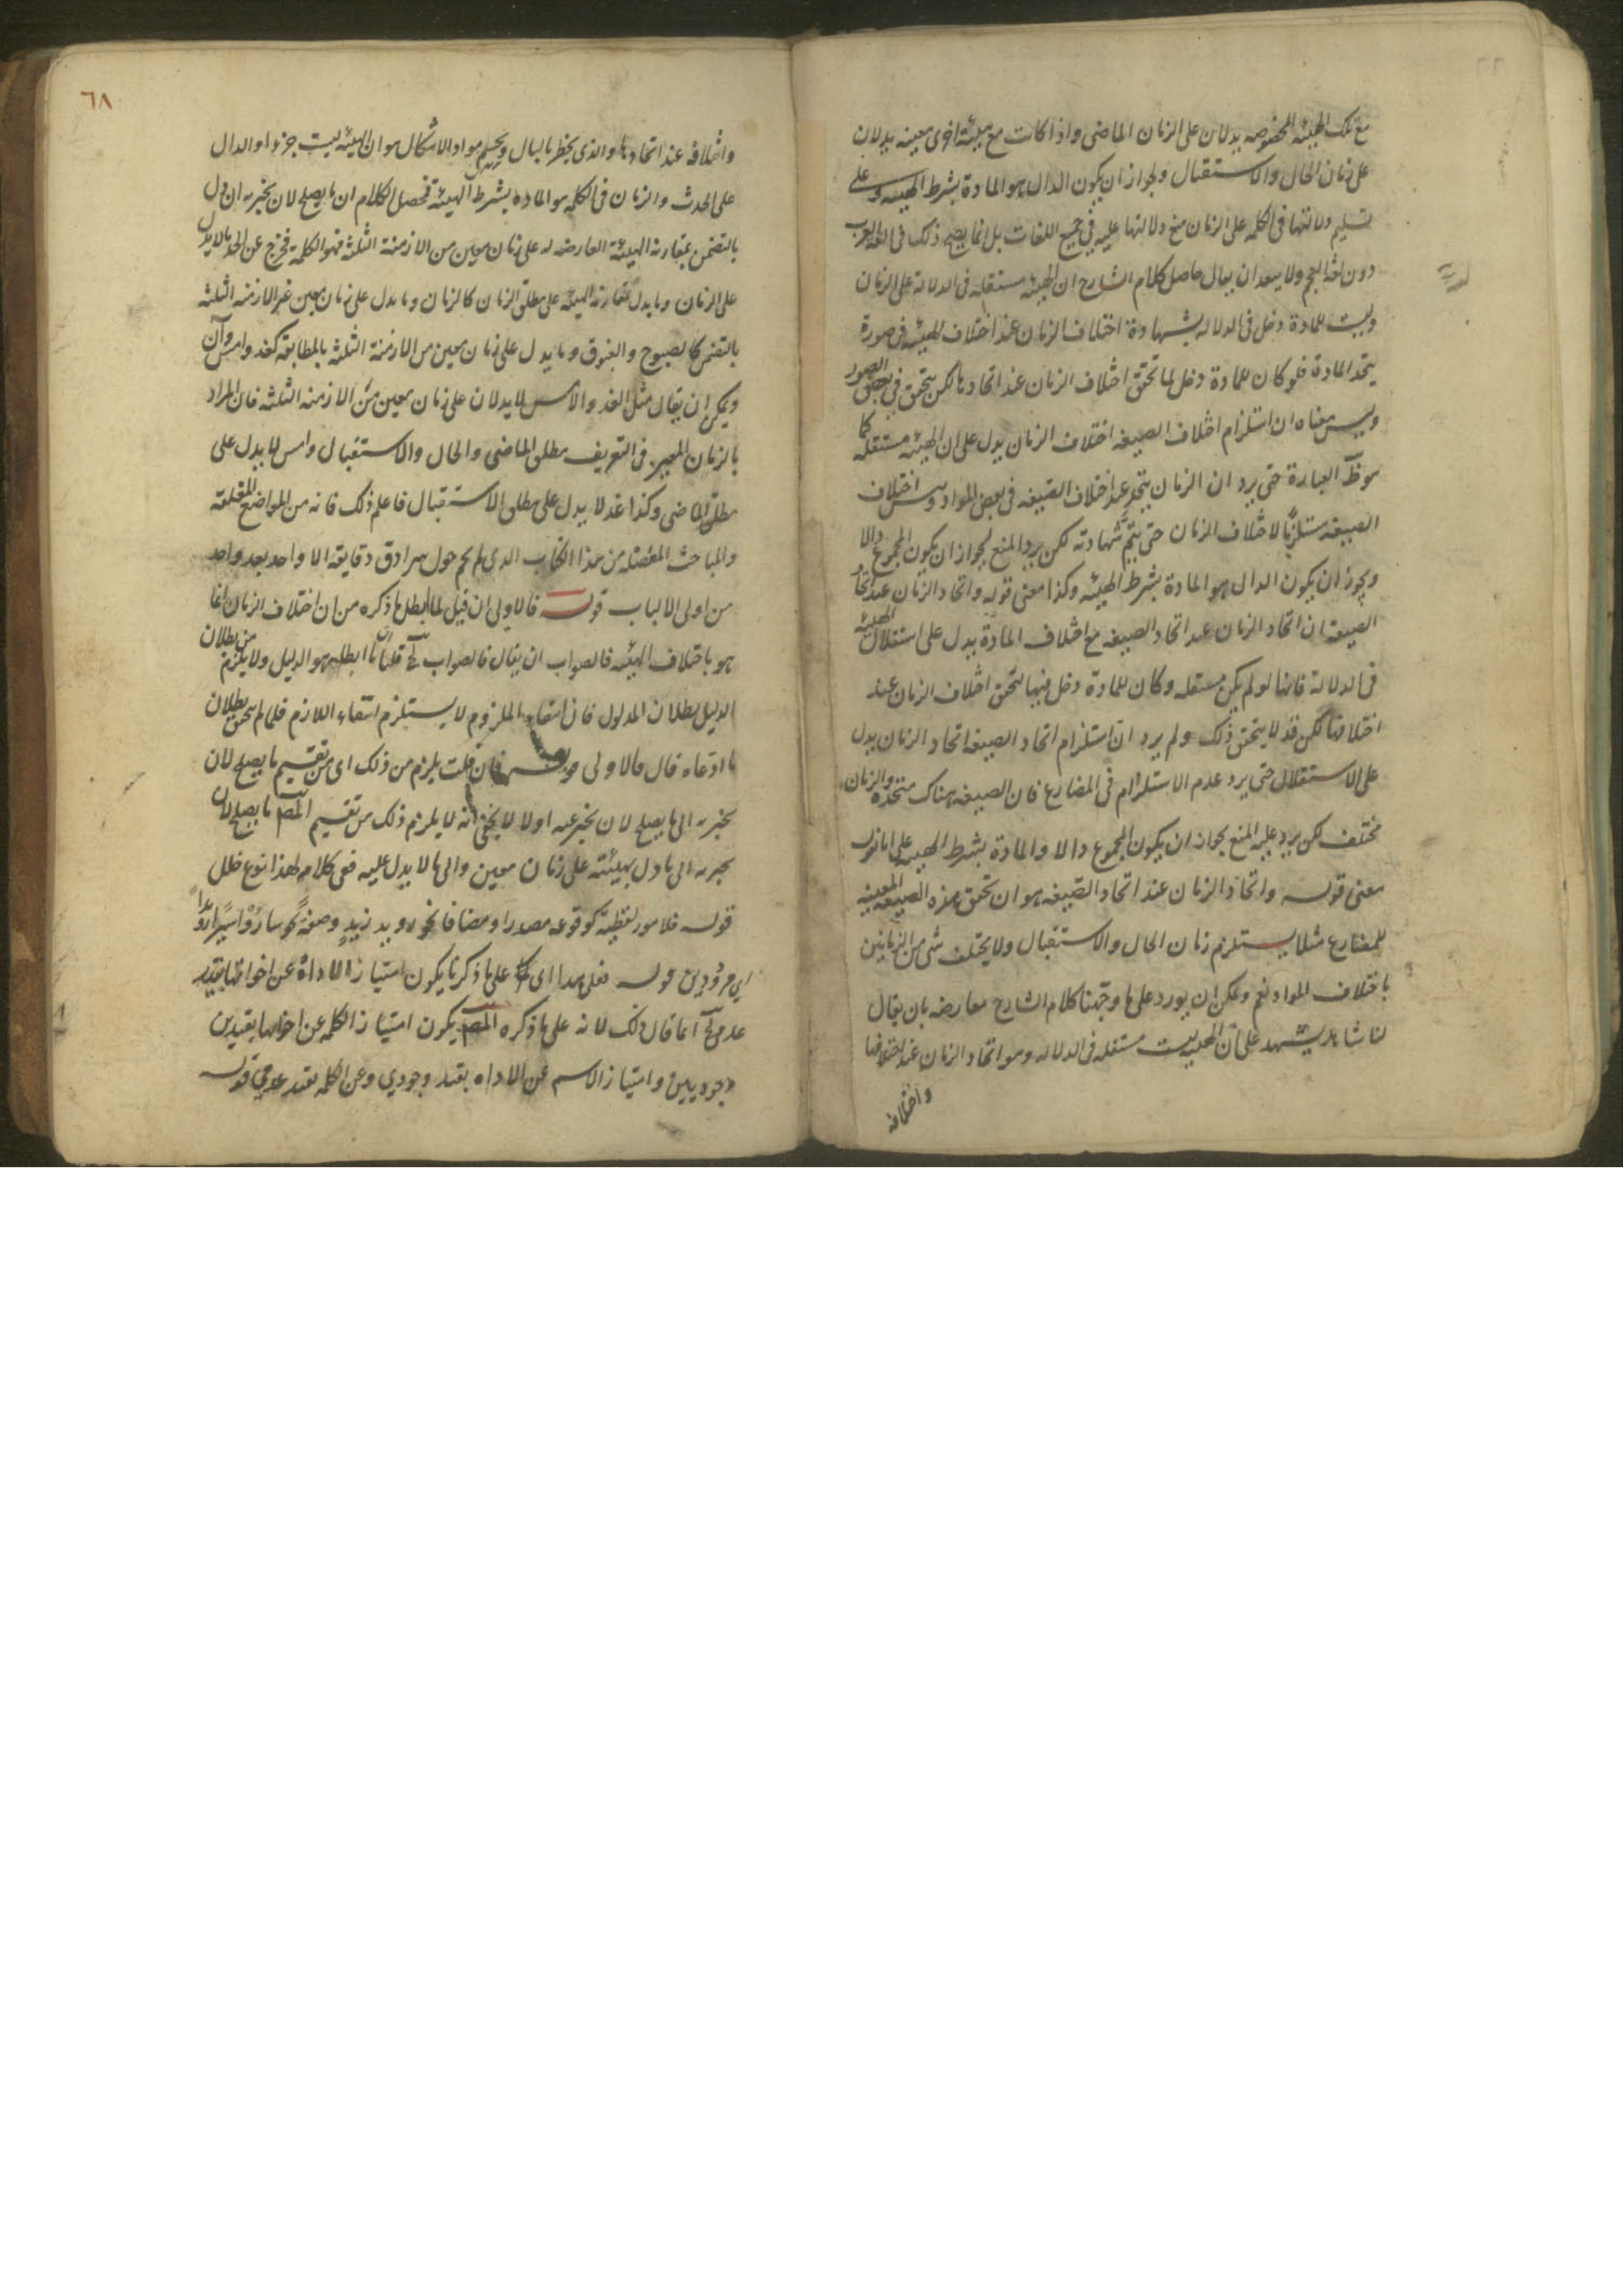 مع تلك الهيئة المخصوصه يدلان على الزمان الماضى واذا كانت مع هيئة اخرى معينه يدلان
على زمان الحال والاستقبال ولجواز ان يكون الدال هو المادة بشرط الهيئه وعلى
تسليم دلالتها فى الكلمه على الزمان منع دلالتها عليه فى جميع اللغات بل انما يصح ذلك فى لغة العرب
دون لغة العجم ولا يبعد ان يقال حاصل كلام الشارح ان الهيئه مستقله فى الدلالة على الزمان
وليست للمادة دخل فى الدلاله بشهادة اختلاف الزمان عند اختلاف الهيئه فى صورة
يتحد المادة فلو كان للمادة دخل لما تحقق اختلاف الزمان عند اتحادها لكن يتحقق فى بعض الصور
وليس معناه ان استلزام اختلاف الصيغه اختلاف الزمان يدل على ان الهيئه مستقله كما
هو ظ العبارة حتى يرد ان الزمان يتحد عند اختلاف الصيغه فى بعض المواد وليس اختلاف
الصيغه مستلزما لاختلاف الزمان حتى يتم شهادته لكن يرد المنع لجواز ان يكون المجموع دالا
ويجوز ان يكون الدال هو المادة بشرط الهيئه وكذا معنى قوله واتحاد الزمان عند اتحاد
الصيغه ان اتحاد الزمان عند اتحاد الصيغه مع اختلاف المادة يدل على استقلال الهيئه
فى الدلالة فانها لو لم يكن مستقله وكان للمادة دخل فيها لتحقق اختلاف الزمان عند
اختلافها لكن قد لا يتحقق ذلك ولم يرد ان استلزام اتحاد الصيغه اتحاد الزمان يدل
على الاستقلال حتى يرد عدم الاستلزام فى المضارع فان الصيغه هناك متحده والزمان
مختلف لكن يرد عليه المنع بجواز ان يكون المجموع دالا والمادة بشرط الهيئه على
معنى قوله واتحاد الزمان عند اتحاد الصيغه هو ان تحقق هذه الصيغه المعينه
للمضارع مثلا يستلزم زمان الحال والاستقبال ولا يختلف شى من الزمانين
باختلاف المواد نعم ويمكن ان يورد على ما وجهنا كلام الشارح معارضه بان يقال
لنا شاهد يشهد على ان الهيئه ليست مستقله فى الدلاله وهو اتحاد الزمان عند اختلافها
واختلافه
٦٨
واختلافه عند اتحادها والذى يخطر بالبال ويحسم مواد الاشكال هو ان الهيئه ليست جزءا والدال
على الحدث والزمان فى الكلمه هو الماده بشرط الهيئة فحصل الكلام ان ما يصلح لان يخبر به ان دل
بالتضمن بمقارنة الهيئة العارضه له على زمان معين من الازمنة الثلثة فهو الكلمة فخرج عن الحد ما لا يدل
على الزمان وما يدل بمقارنة الهيئه على مطلق الزمان كالزمان وما يدل على زمان معين غير الازمنه الثلثة
بالتضمن كالصبوح والغبوق وما يدل على زمان معين من الازمنة الثلثة بالمطابقة كغد وامس وآن
ويمكن ان يقال مثل الغد والامس لا يدلان على زمان معين من الازمنه الثلثه فان المراد
بالزمان المعين فى التعريف مطلق الماضى والحال والاستقبال وامس لا يدل على
مطلق الماضى وكذا غد لا يدل على مطلق الاستقبال فاعلم ذلك فانه من المواضع المغلقة
والمباحث المعضله من هذا الكتاب الذى لم يحم حول سرادق دقايقه الا واحد بعد واحد
من اولى الالباب قوله فالاولى ان قيل لما ابطل ما ذكره من ان اختلاف الزمان انما
هو باختلاف الهيئه فالصواب ان يقال فالصواب قلنا ان ما ابطله هو الدليل ولا يلزم من بطلان
الدليل بطلان المدلول فان انتفاء الملزوم لا يستلزم انتفاء اللازم فلما لم يتحقق بطلان
ما ادعاه قال فالاولى قوله فان قلت يلزم من ذلك اى من تقسيم ما يصلح لان
يخبر به الى ما يصلح لان يخبر عنه اولا لا يخفى انه لا يلزم ذلك من تقسيم المص ما يصلح لان
يخبر به الى ما دل بهيئته على زمان معين والى ما لا يدل عليه ففى كلامه هذا نوع خلل
قوله فلامور لفظية كوقوعه مصدرا ومضافا نحو رويد زيد وصفة نحو ساروا سيرا رويدا
اى مرودين قوله فعلى هذا اى على ما ذكرنا يكون امتياز الاداة عن اخواتها بقيد
عدمى انما قال ذلك لانه على ما ذكره المص يكون امتياز الكلمه عن اخواتها بقيدين
وجوديين وامتياز الاسم عن الاداه بقيد وجودى وعن الكلمه بقيد عدمى قوله